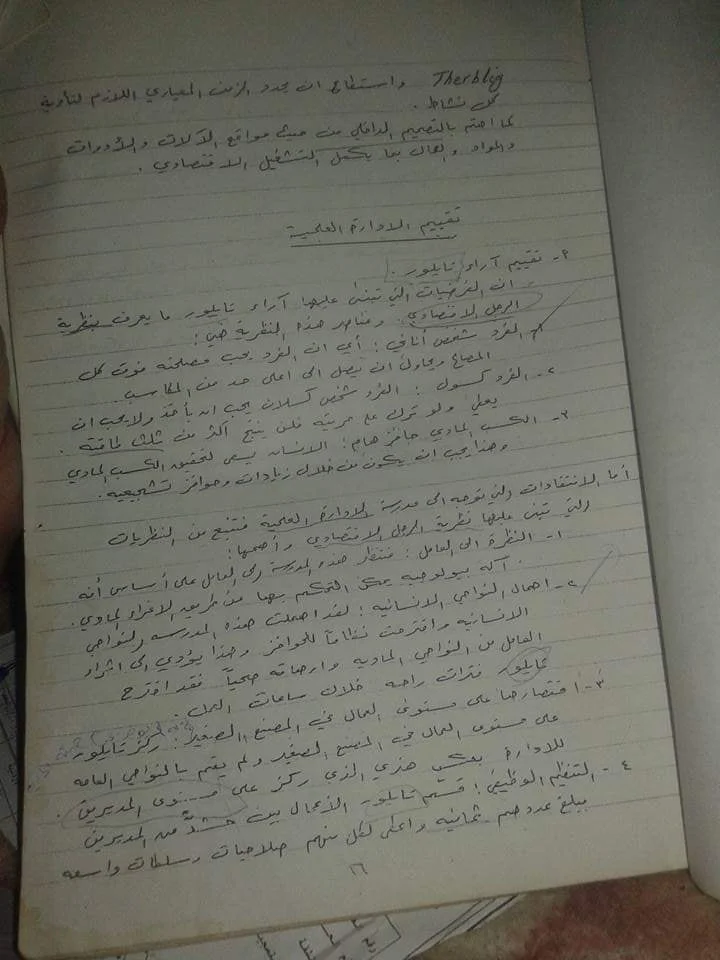 Therblig واستطاع ان يحدد الزمن المعياري اللازم لتأدية
كل نشاط .
كما اهتم بالتصميم الداخلي من حيث مواقع الآلات والأدوات
والمواد والعمال بما يكفل التشغيل الاقتصادي .
تقييم الادارة العلمية
٢- تقييم آراء تايلور :
ان الفرضيات التي تبنى عليها آراء تايلور ما يعرف بنظرية
الرجل الاقتصادي . وعناصر هذه النظرية هي :
١- الفرد شخص أناني : أي ان الفرد يحب مصلحته فوق كل
المصالح ويحاول ان يصل الى اعلى حد من المكاسب .
٢- الفرد كسول : الفرد شخص كسلان يحب ان يأخذ ولا يحب ان
يعطي ولو ترك على حريته فلن ينتج أكثر من ثلث طاقته .
٣- الكسب المادي حافز هام : الانسان يسعى لتحقيق الكسب المادي
وهذا يجب ان يكون من خلال زيادات وحوافز تشجيعيه .
أما الانتقادات التي توجه الى مدرسة الادارة العلمية فتنبع من النظريات
التي تبنى عليها نظرية الرجل الاقتصادي وأهمها :
١- النظرة الى العامل : فتنظر هذه المدرسة الى العامل على أساس أنه
آلة بيولوجيه يمكن التحكم بها عن طريق الاغراء المادي .
٢- اهمال النواحي الانسانيه : لقد اهملت هذه المدرسه النواحي
الانسانيه واقترحت نظاماً للحوافز وهذا يؤدي الى اثراء
العامل من النواحي الماديه وارهاقه صحياً فقد اقترح
تايلور فترات راحه خلال ساعات العمل .
٣- اقتصارها على مستوى العمال في المصنع الصغير : ركز تايلور
على مستوى العمال في المصنع الصغير ولم يهتم بالنواحي العامه
للادارة بعكس هنري الذي ركز على مستوى المديرين .
٤- التنظيم الوظيفي : قسم تايلور الأعمال بين حشد من المديرين
يبلغ عددهم ثمانيه واعطى لكل منهم صلاحيات وسلطات واسعه
١٦